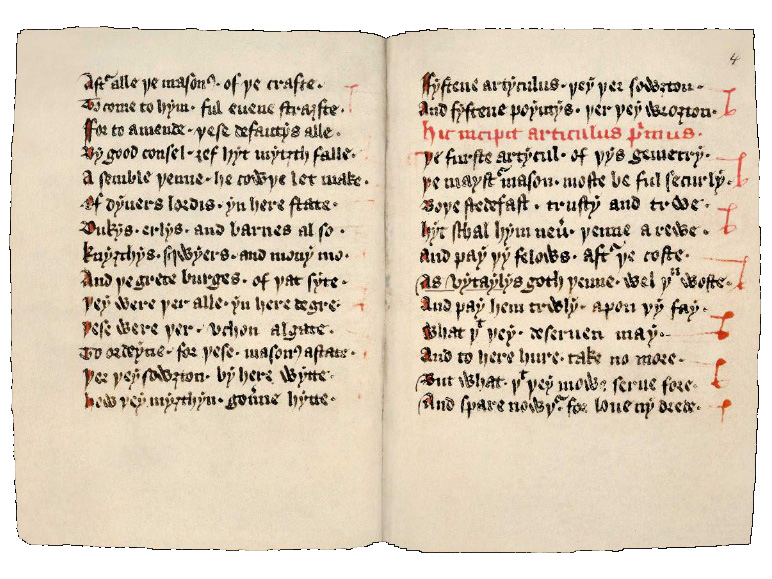 Aftr alle þe masonus of þe crafte
To come to hym ful evene straȝfte
For to amende þese defautys alle
By good consel ȝef hyt myȝth falle
A semble þenne he cowþe let make
Of dyvers lordis yn here state
Dukys erlys and barnes al so
Knyȝthys sqwyers and mony mo
And þe grete burges of þat syte
þey were þer alle yn here degre
þese were þer uchon algate
To ordeyne for þese masonus astate
þer þey sowȝton by here wytte
How þey myȝthyn governe hytte
4
Fyftene artyculus þey þer sowȝton
And fyftene poyntys þer þey wroȝton
Hic incipit articulus primus
þe furste artycul of þys gemetry
þe mayster mason moste be ful securly
Boþe stedefast trusty and trwe
Hyt shal hym never þenne arewe
And pay þy felows after þe coste
As vytaylys goth þenne wel þu woste
And pay hem trwly apon þy fay
What þt þey deserven may
And to here hure take no more
But what þt þey mowe serve fore
And spare nowþer for love ny drede